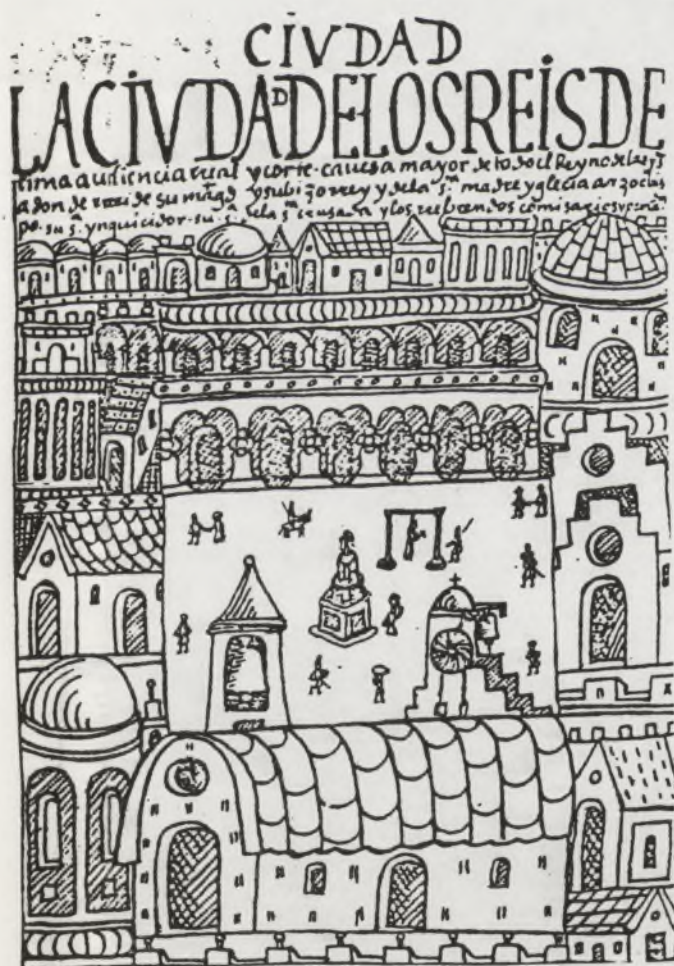 CIVDAD
LA CIVDAD DE LOS REIS DE
lima audiencia rreal y corte - cauesa mayor de todo el Reyno de las
adon de rrecide su mag.d y su bizorrey y de la s.ta madre yglecia arzobis
po - su s. ynquicidor - su s. de la s.ta crusada y los rreberendos comisarios y